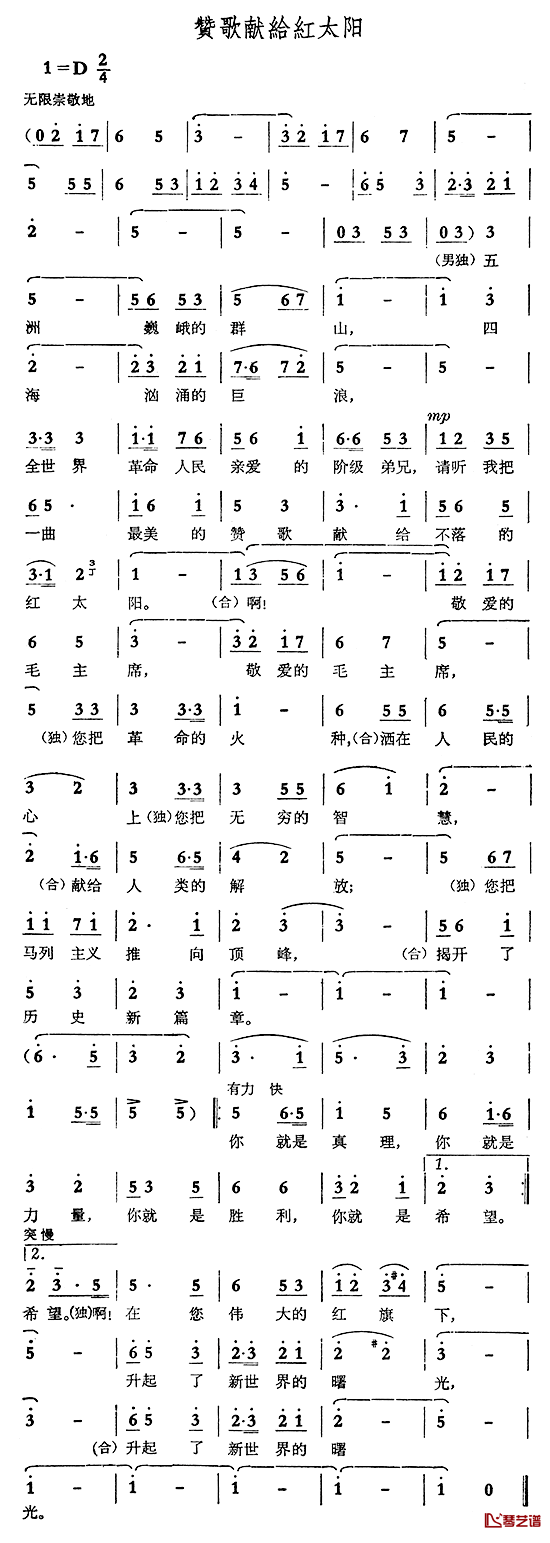 赞歌献給紅太阳
1=D 2/4
无限崇敬地
(0 2 1 7 | 6 5 | 3 - | 3 2 1 7 | 6 7 | 5 - |
5 5 5 | 6 5 3 | 1 2 3 4 | 5 - | 6 5 3 | 2·3 2 1 |
2 - | 5 - | 5 - | 0 3 5 3 | 0 3) 3 |
(男独)五
5 - | 5 6 5 3 | 5 6 7 | 1 - | 1 3 |
洲 巍峨的 群 山, 四
2 - | 2 3 2 1 | 7·6 7 2 | 5 - | 5 - |
海 汹涌的 巨 浪,
mp
3·3 3 | 1·1 7 6 | 5 6 1 | 6·6 5 3 | 1 2 3 5 |
全世界 革命人民 亲爱的 阶级弟兄, 请听我把
6 5 · | 1 6 1 | 5 3 | 3 · 1 | 5 6 5 |
一曲 最美的 赞歌 献给 不落的
3·1 2 3 | 1 - | 1 3 5 6 | 1 - | 1 2 1 7 |
红太 阳。 (合)啊! 敬爱的
6 5 | 3 - | 3 2 1 7 | 6 7 | 5 - |
毛主 席, 敬爱的 毛主 席,
5 3 3 | 3 3·3 | 1 - | 6 5 5 | 6 5·5 |
(独)您把 革命的 火 种,(合)洒在 人民的
3 2 | 3 3·3 | 3 5 5 | 6 1 | 2 - |
心 上(独)您把 无穷的 智 慧,
2 1·6 | 5 6·5 | 4 2 | 5 - | 5 6 7 |
(合)献给 人类的 解 放; (独)您把
1 1 7 1 | 2 · 1 | 2 3 | 3 - | 5 6 1 |
马列主义 推向 顶峰, (合)揭开了
5 3 | 2 3 | 1 - | 1 - | 1 - |
历史 新篇 章。
(6 · 5 | 3 2 | 3 · 1 | 5 · 3 | 2 3 |
有力 快
1 5·5 | 5 5) | 5 6·5 | 1 5 | 6 1·6 |
你就是 真理, 你就是
1.
3 2 | 5 3 5 | 6 6 | 3 2 1 | 2 3 |
力量, 你就是 胜利, 你就是 希望。
突慢
2.
2 3·5 | 5 · 5 | 6 5 3 | 1 2 3 #4 | 5 - |
希望。(独)啊! 在您 伟大的 红旗 下,
5 - | 6 5 3 | 2·3 2 1 | 2 #2 | 3 - |
升起了 新世界的 曙 光,
3 - | 6 5 3 | 2·3 2 1 | 2 - | 5 - |
(合)升起了 新世界的 曙
1 - | 1 - | 1 - | 1 - | 1 0 |
光。
琴艺谱